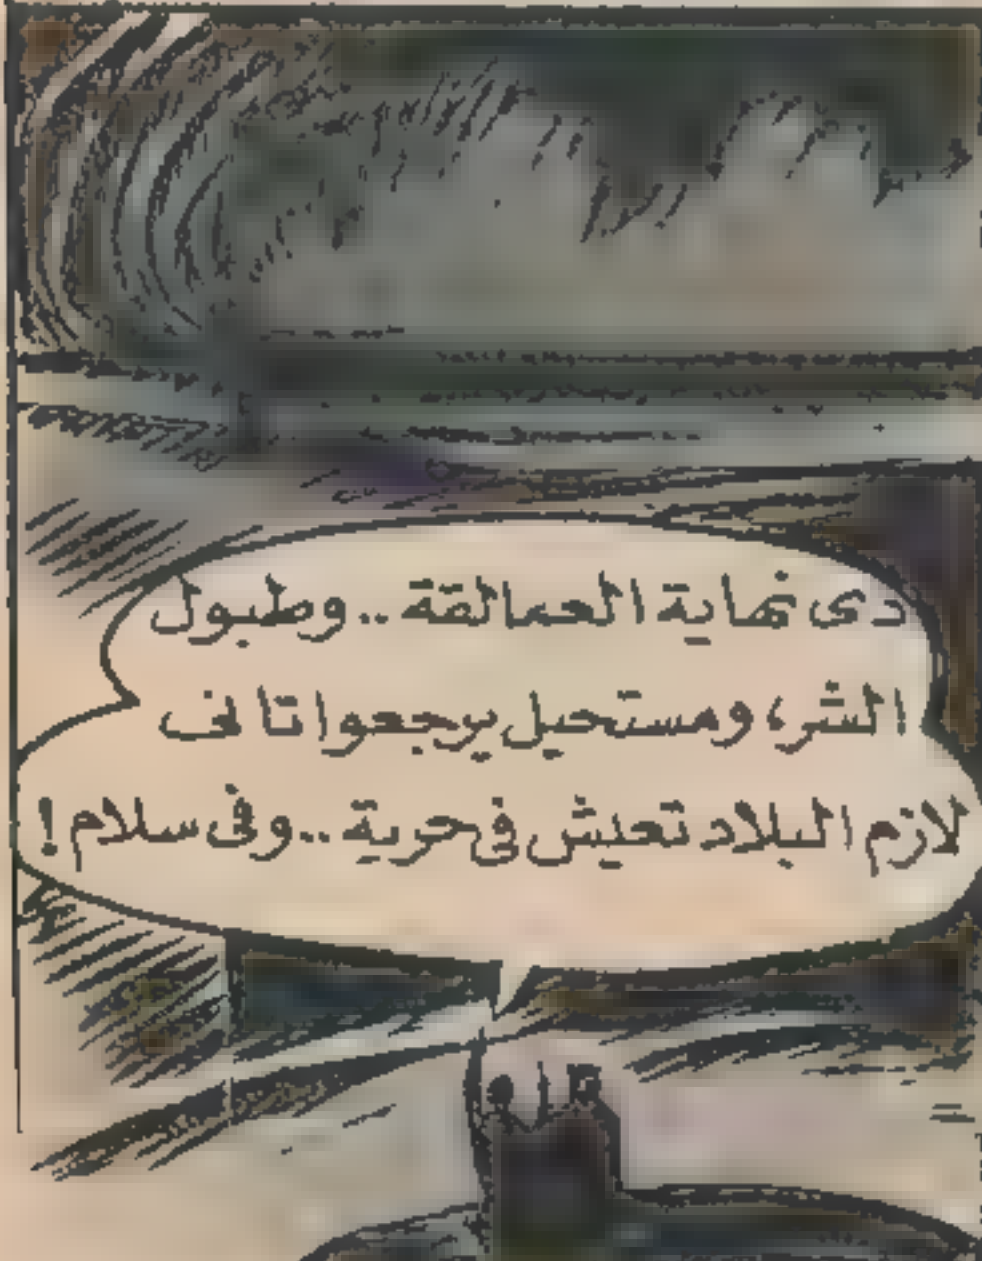 دى نهاية العمالقة .. وطبول
الشر، ومستحيل يرجعوا تانى
لازم البلاد تعيش فى حرية .. وفى سلام !